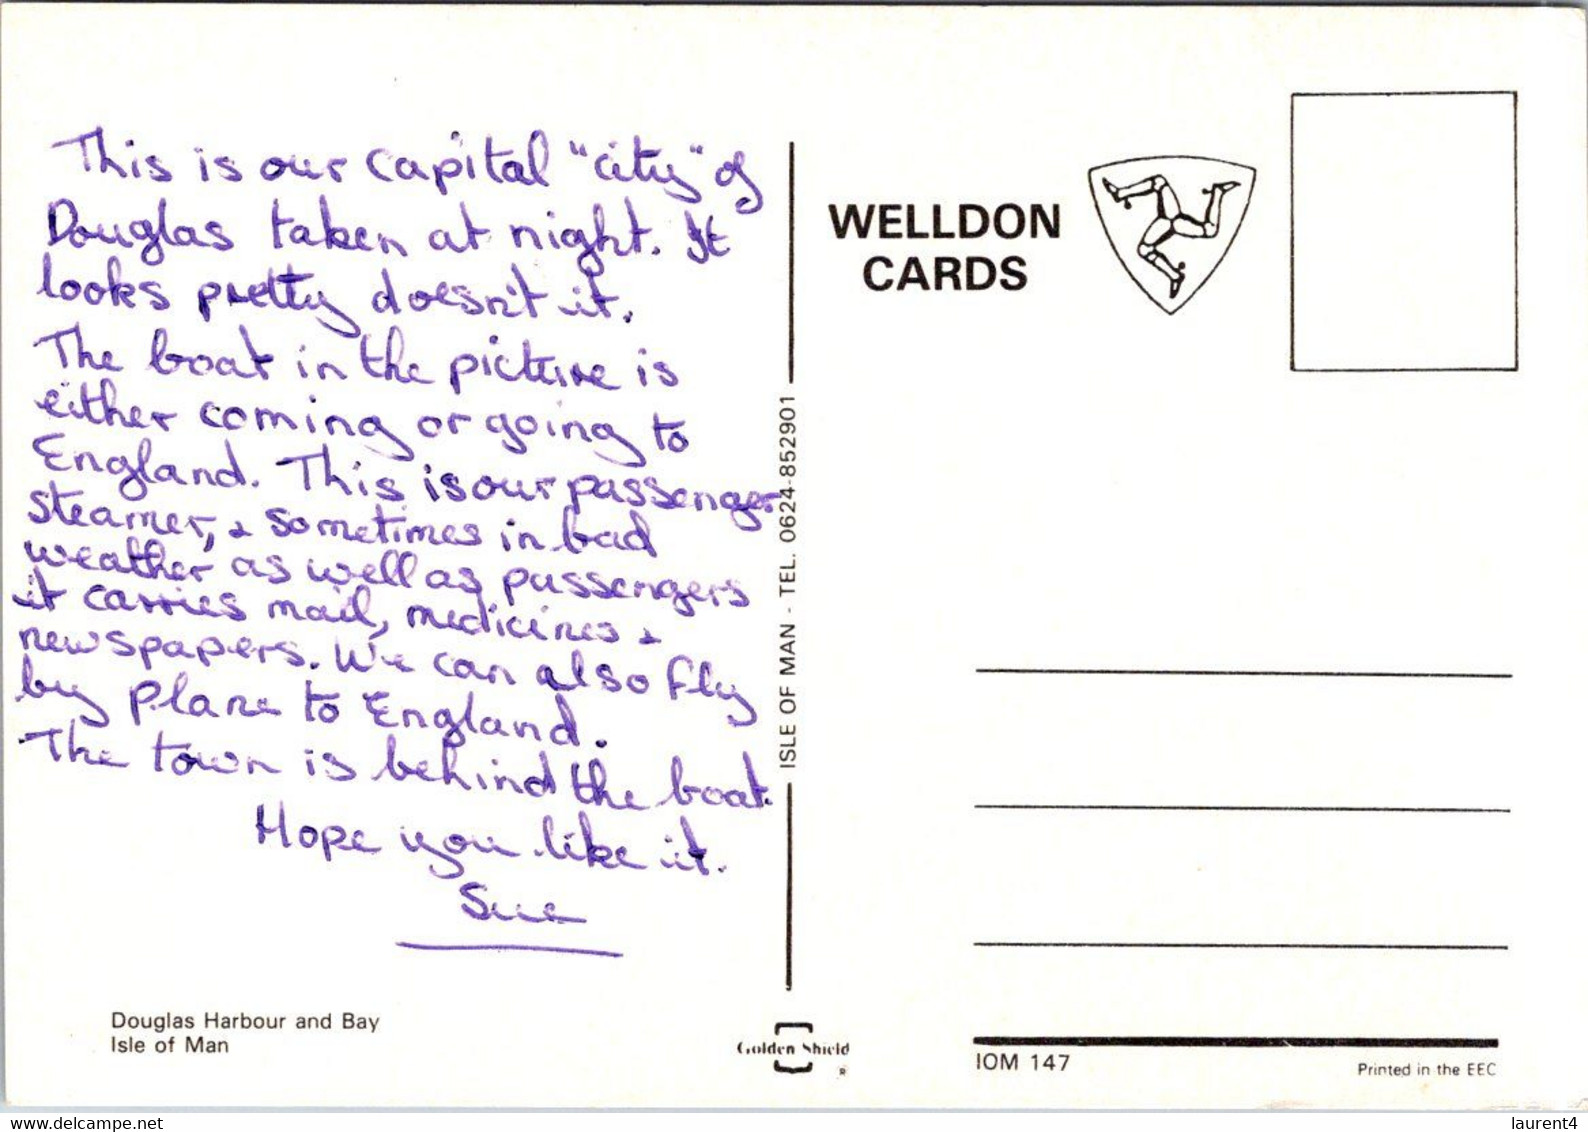 This is our capital "city" of
Douglas taken at night. It
looks pretty doesn't it.
The boat in the picture is
either coming or going to
England. This is our passenger
steamer, & sometimes in bad
weather as well as passengers
it carries mail, medicines &
newspapers. We can also fly
by plane to England.
The town is behind the boat.
Hope you like it.
Sue
Douglas Harbour and Bay
Isle of Man
ISLE OF MAN - TEL. 0624-852901
Golden Shield
®
WELLDON
CARDS
IOM 147
Printed in the EEC
delcampe.net
laurent4